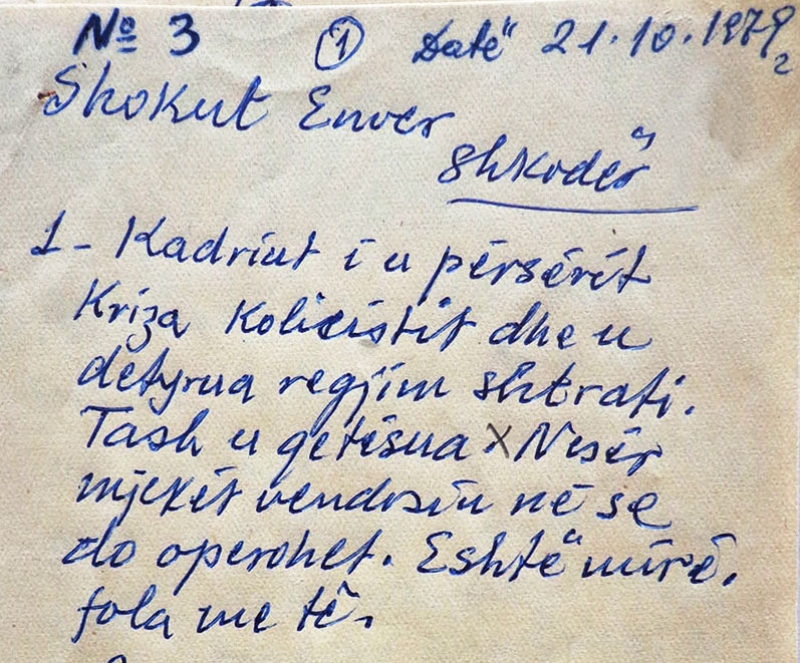 № 3 ① Datë 21.10.1979
Shokut Enver
Shkodër
1- Kadriut i u përsërit
Kriza Kolicistit dhe u
detyrua regjim shtrati.
Tash u qetësua x Nesër
mjekët vendosin në se
do operohet. Eshtë mirë.
fola me të.